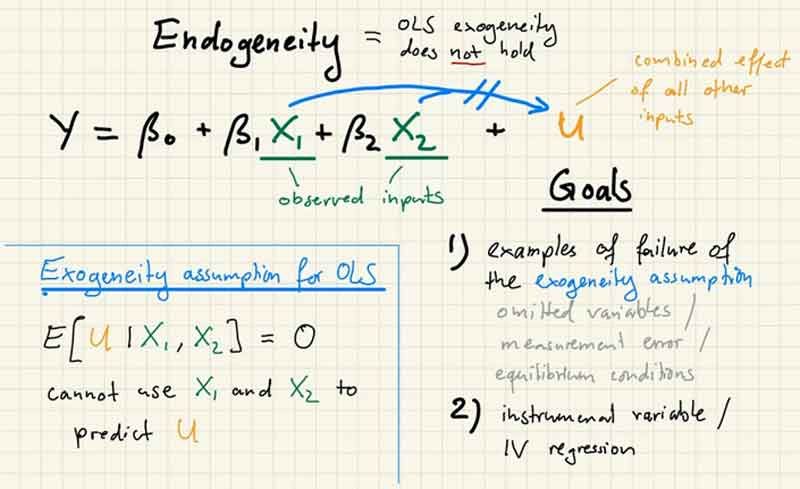 Endogeneity = OLS exogeneity
does not hold
combined effect
of all other
inputs
Y = β₀ + β₁ X₁ + β₂ X₂ + U
observed inputs
Goals
1) examples of failure of
the exogeneity assumption
omitted variables /
measurement error /
equilibrium conditions
2) instrumental variable /
IV regression
Exogeneity assumption for OLS
E[U | X₁, X₂] = 0
cannot use X₁ and X₂ to
predict U